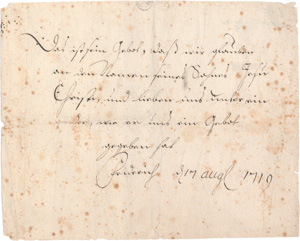 Das ist sein Gebot, daß wir glauben
an den Namen seines Sohnes Jesu
Christi, und lieben uns unter ein
ander, wie er uns ein Gebot
gegeben hat
d 17 aug 1719